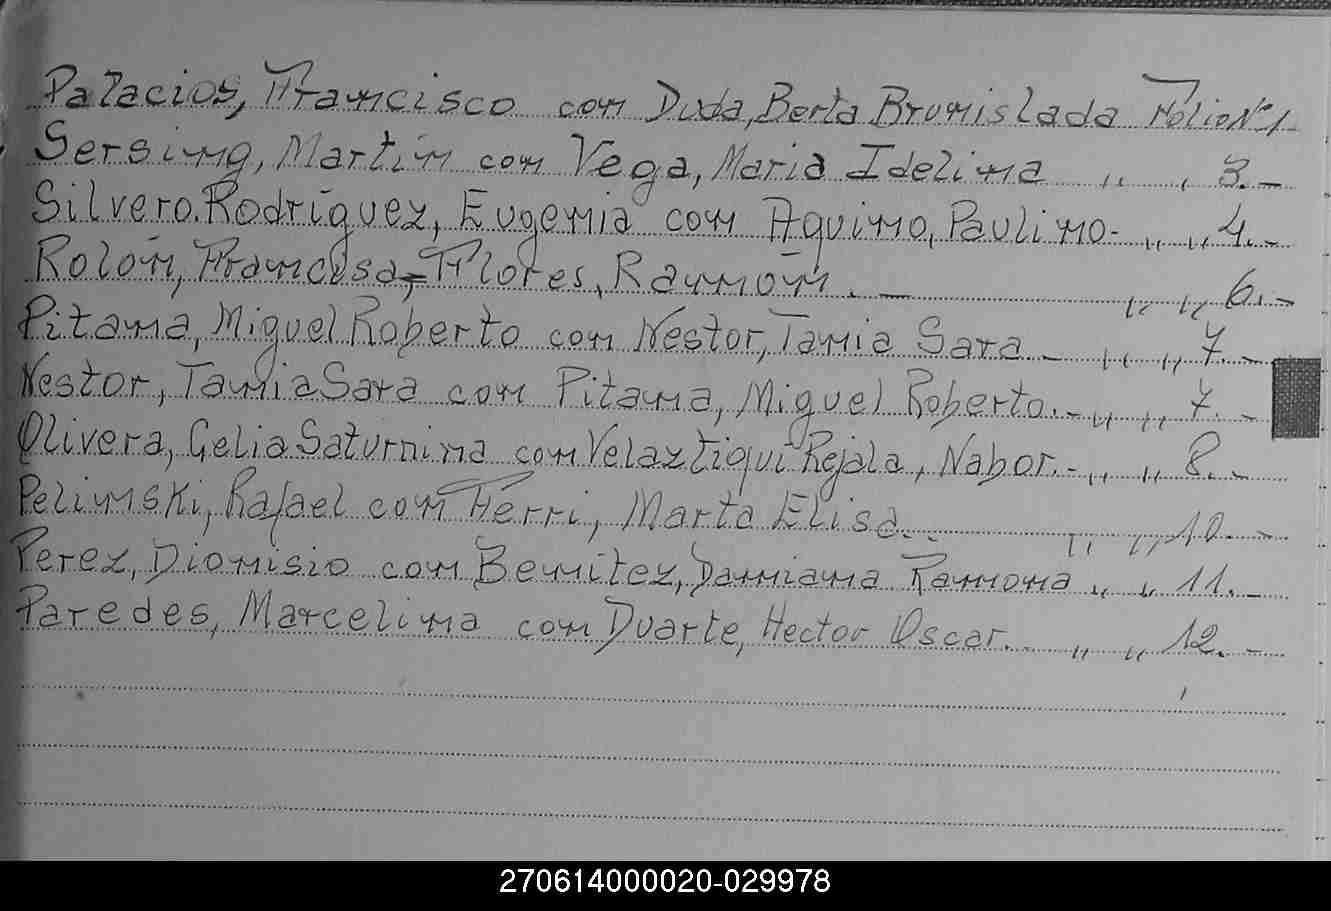 Palacios, Francisco con Duda, Berta Bronislada Folio Nº 1
Gersing, Martin con Vega, Maria Idelina " " 3.-
Silvero Rodríguez, Eugenia con Aquino, Paulino.- " " 4.-
Rolón, Francisca,- Flores, Ramón.- " " 6.-
Pitana, Miguel Roberto con Nestor, Tania Sara.- " " 7.-
Nestor, Tania Sara con Pitana, Miguel Roberto.- " " 7.-
Olivera, Celia Saturnina con Velaztiqui Rejala, Nabor.- " " 8.-
Pelinski, Rafael con Ferri, Marta Elisa.- " " 10.-
Perez, Dionisio con Benitez, Damiana Ramona " " 11.-
Paredes, Marcelina con Duarte, Hector Oscar.- " " 12.-
270614000020-029978